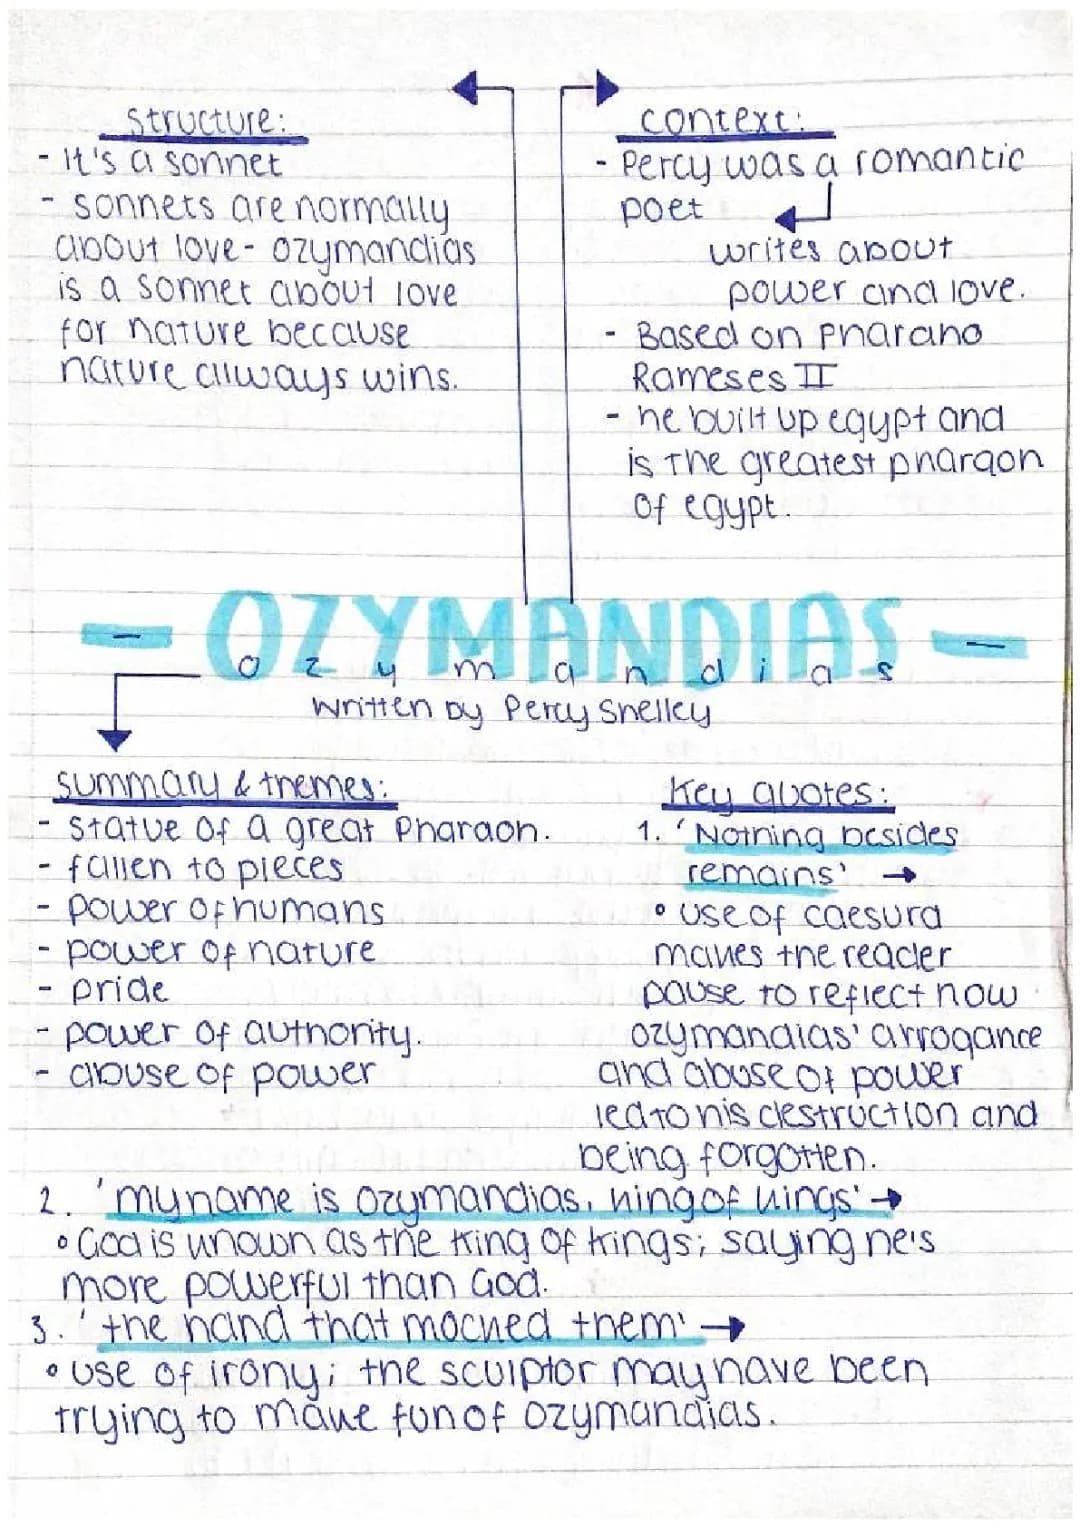 Structure:
- It's a sonnet
- sonnets are normally
about love - ozymandias
is a sonnet about love
for nature because
nature always wins.
context:
- Percy was a romantic
poet
writes about
power and love.
- Based on pharaho
Rameses II
- he built up egypt and
is the greatest pharaon
of egypt.
- OZYMANDIAS -
ozymandias
written by Percy Shelley
summary & themes:
- statue of a great Pharaoh.
- fallen to pieces
- power of humans
- power of nature
- pride
- power of authority.
- abuse of power
Key quotes:
1. 'Nothing besides
remains' →
• use of caesura
makes the reader
pause to reflect how
ozymandias' arrogance
and abuse of power
led to his destruction and
being forgotten.
2. 'my name is ozymandias, king of kings' →
• God is known as the king of kings; saying he's
more powerful than God.
3. 'the hand that mocked them' →
• use of irony; the sculptor may have been
trying to make fun of ozymandias.